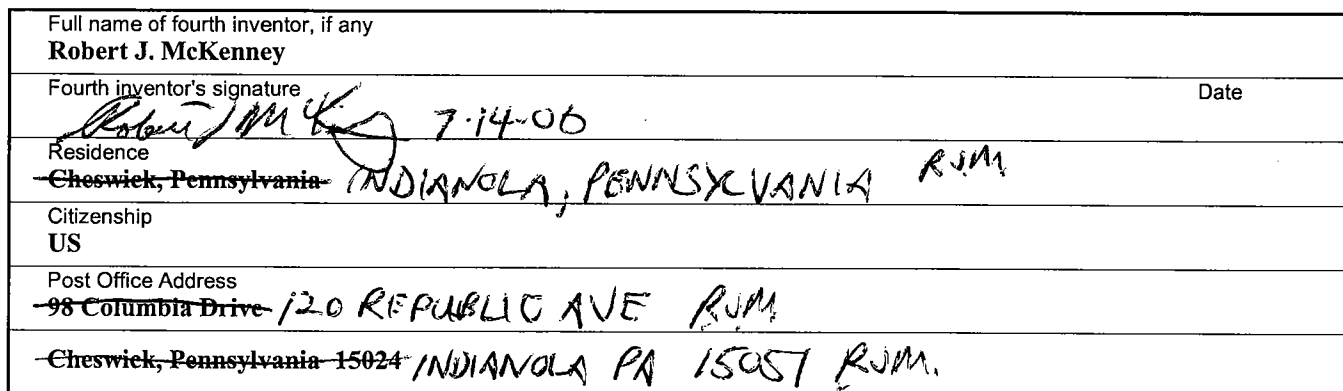 Full name of fourth inventor, if any
Robert J. McKenney
Fourth inventor's signature Date
Robert J McKenney 7-14-06
Residence
Cheswick, Pennsylvania INDIANOLA, PENNSYLVANIA RJM
Citizenship
US
Post Office Address
98 Columbia Drive 120 REPUBLIC AVE RJM
Cheswick, Pennsylvania 15024 INDIANOLA PA 15051 RJM.